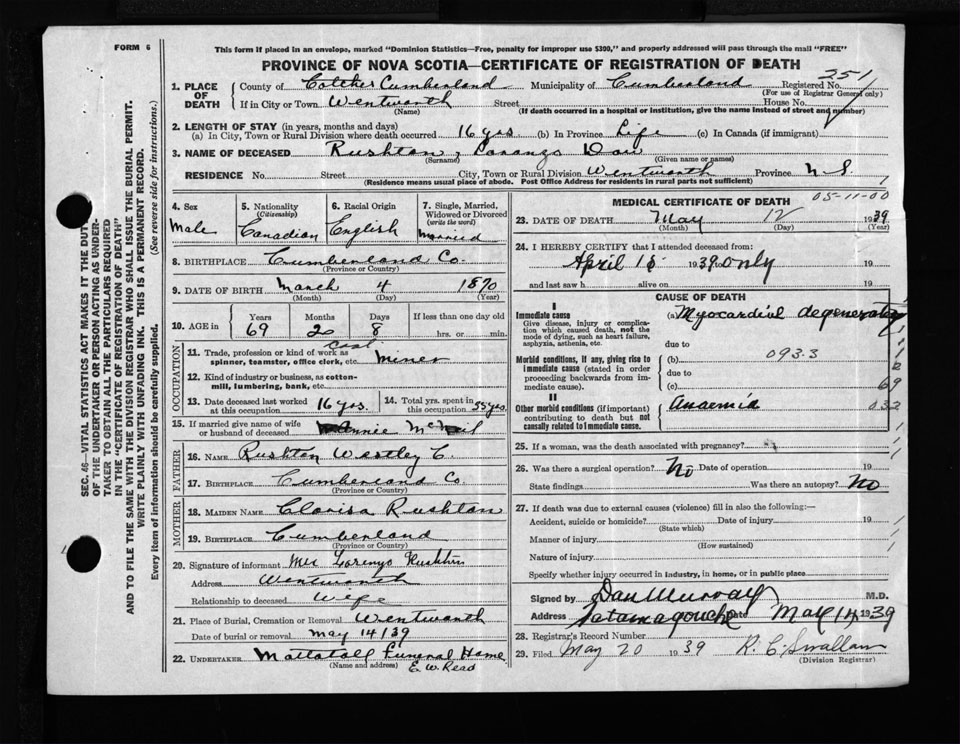 FORM 6
This form if placed in an envelope, marked "Dominion Statistics—Free, penalty for improper use $300," and properly addressed will pass through the mail "FREE"
PROVINCE OF NOVA SCOTIA—CERTIFICATE OF REGISTRATION OF DEATH
251
1. PLACE OF DEATH
County of Colches Cumberland Municipality of Cumberland Registered No.
(For use of Registrar General only)
If in City or Town Wentworth Street House No.
(Name) (If death occurred in a hospital or institution, give the name instead of street and number)
2. LENGTH OF STAY (in years, months and days)
(a) In City, Town or Rural Division where death occurred 16 yrs. (b) In Province Life (c) In Canada (if immigrant)
3. NAME OF DECEASED Rushton, Loranzo Dow
(Surname) (Given name or names)
RESIDENCE No. Street City, Town or Rural Division Wentworth Province N S
(Residence means usual place of abode. Post Office Address for residents in rural parts not sufficient)
4. Sex Male
5. Nationality (Citizenship) Canadian
6. Racial Origin English
7. Single, Married, Widowed or Divorced (write the word) Married
8. BIRTHPLACE Cumberland Co.
(Province or Country)
9. DATE OF BIRTH March 4 1870
(Month) (Day) (Year)
10. AGE in Years 69 Months 2 Days 8 If less than one day old hrs. or min.
OCCUPATION
11. Trade, profession or kind of work as spinner, teamster, office clerk, etc. Coal Miner
12. Kind of industry or business, as cotton-mill, lumbering, bank, etc.
13. Date deceased last worked at this occupation 16 yrs. 14. Total yrs. spent in this occupation 35 yrs.
15. If married give name of wife or husband of deceased Annie McNeil
FATHER
16. NAME Rushton Westley C.
17. BIRTHPLACE Cumberland Co.
(Province or Country)
MOTHER
18. MAIDEN NAME Clorisa Rushton
19. BIRTHPLACE Cumberland
(Province or Country)
20. Signature of informant Mrs Lorenzo Rushton
Address Wentworth
Relationship to deceased Wife
21. Place of Burial, Cremation or Removal Wentworth
Date of burial or removal May 14/39
22. UNDERTAKER Mattatall Funeral Home
(Name and address) E. W. Read
MEDICAL CERTIFICATE OF DEATH
05-11-00
23. DATE OF DEATH May 12 1939
(Month) (Day) (Year)
24. I HEREBY CERTIFY that I attended deceased from:
April 15 1939 only 19
and last saw h alive on 19
CAUSE OF DEATH
I
Immediate cause
Give disease, injury or complication which caused death, not the mode of dying, such as heart failure, asphyxia, asthenia, etc.
(a) Myocardial degeneration
due to
Morbid conditions, if any, giving rise to immediate cause (stated in order proceeding backwards from immediate cause).
(b) 093.3
due to
(c) 69
II
Other morbid conditions (if important) contributing to death but not causally related to immediate cause.
Anaemia 032
25. If a woman, was the death associated with pregnancy?
26. Was there a surgical operation? No Date of operation 19
State findings Was there an autopsy? No
27. If death was due to external causes (violence) fill in also the following:—
Accident, suicide or homicide? Date of injury 19
(State which)
Manner of injury
(How sustained)
Nature of injury
Specify whether injury occurred in industry, in home, or in public place
Signed by Dan Murray M.D.
Address Tatamagouche Date May 14 1939
28. Registrar's Record Number
29. Filed May 20 1939 R. C. Swallow
(Division Registrar)
SEC. 46—VITAL STATISTICS ACT MAKES IT THE DUTY OF THE UNDERTAKER OR PERSON ACTING AS UNDERTAKER TO OBTAIN ALL THE PARTICULARS REQUIRED IN THE "CERTIFICATE OF REGISTRATION OF DEATH" AND TO FILE THE SAME WITH THE DIVISION REGISTRAR WHO SHALL ISSUE THE BURIAL PERMIT.
WRITE PLAINLY WITH UNFADING INK. THIS IS A PERMANENT RECORD.
Every item of information should be carefully supplied. (See reverse side for instructions.)